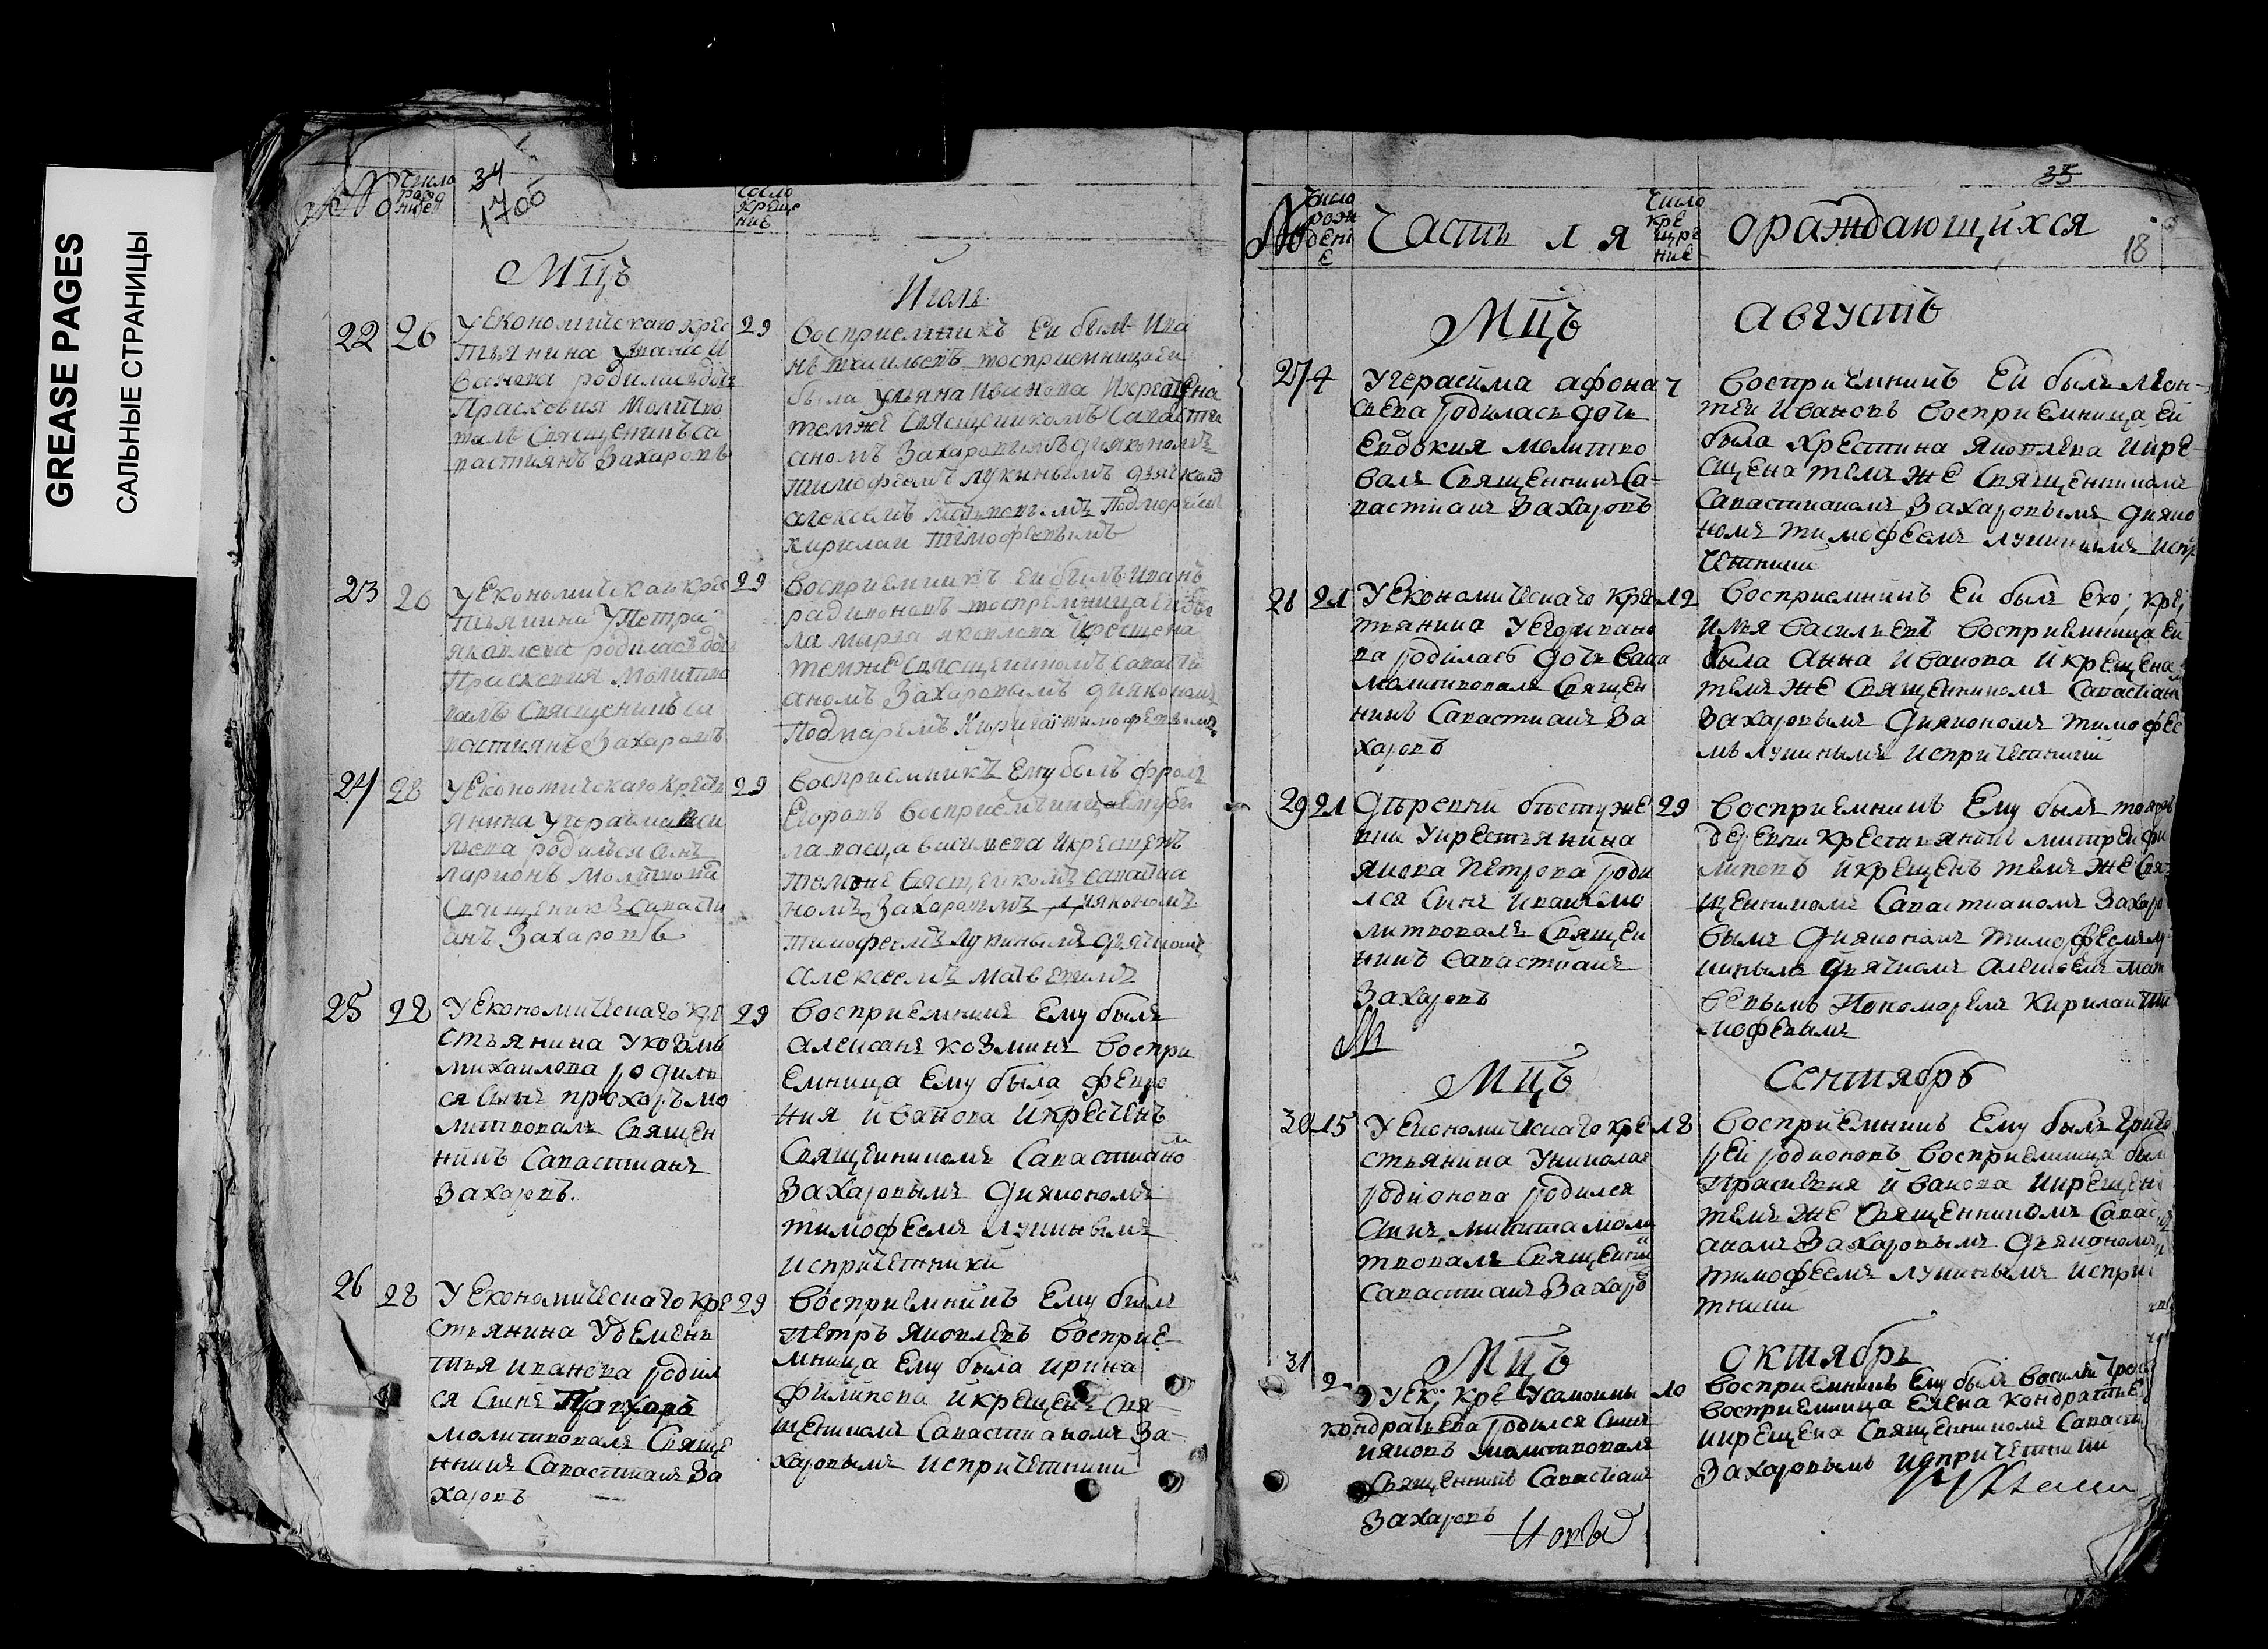 GREASE PAGES
САЛЬНЫЕ СТРАНИЦЫ
№
Число
рож
34
число
креще
ние
Мцъ
Июль
22 26
Уекономическаго крес
тьянина
ванова родиласьдоч
Прасковия Молитво
валъ Священникъса
вастиянъ Захаровъ
29
восприемникъ Еи былъ Ива
нъ восприемницаеи
была ульяна Иванова Икрещена
темже Священникомъ Савасти
аномъ Захаровымъ дияконом
тимофеемъ лукинымъ дьячком
алексеемъ
кирилаи тимофевымъ
23 26
Уекономическаи крес
тьянина УПетра
яковлева родиласьдоч
Молитво
валъ Священикъ са
вастиянъ Захаровъ
29
восприемникъ еи былъ Иванъ
радивоновъ
ла марва яковлева Икрещена
темже Священникомъ савасти
аномъ Захаровымъ дияконом
24 28
Уекономическаго кресть
янина
родился Сынъ
ларионъ Молитвова
Священикъ савасти
анъ Захаровъ
29
восприемникъ Ему былъ фролъ
Егоровъ Восприемъница Ему бы
ла василева Икрещенъ
темже савастиа
номъ Захаровымъ дияконом
тимофеемъ Лукинымъ дьячком
алексеемъ
25 28
Уекономическаго кре
стьянина Укозмы
михаилова родилъ
ся Сынъ прохоръ мо
литвовалъ Священ
никъ Савастианъ
Захаровъ.
29
Восприемникъ Ему былъ
алексанъ козминъ воспри
Емница Ему была февро
ния иванова Икресченъ
Священникомъ Савастиано
Захаровымъ Дияконом
тимофеемъ лукинымъ
испричетники
26 28
Уекономическаго кре
стьянина Удемень
тья иванова родил
ся Сынъ
молитвовалъ Свяще
нникъ Савастианъ За
харовъ
29
восприемникъ Ему былъ
Петръ яковлевъ восприе
мница Ему была ирина
филипова икрещенъ Свя
щеникомъ Савастианомъ За
харовымъ испричетники
33
18
№
Число
рож
дени
е
Часть 1 я
Число
кре
щре
ние
ораждающихся
Мцъ
августъ
27 4
Угерасима афона
сьева родилась дочь
Евдокия молитво
валъ Священникъ Са
вастианъ Захаровъ
4
восприемникъ Еи былъ леон
теи Ивановъ Восприемница еи
была крестина яковлева икре
щена темъ же Священникомъ
Савастианомъ Захаровымъ дияко
номъ тимофеемъ лукинымъ испр
четники
28 21
Уекономическаго кре
тьянина
ва родилась дочь
молитвовалъ Священ
никъ Савастианъ За
харовъ
12
Восприемникъ Еи былъ еко; кре;
илья васильевъ восприемница еи
была анна иванова икрещена
темъ же Священникомъ Савастиан
Захаровымъ дияконом тимофее
мъ лукинымъ испричетники
29 21
деревни бестуже
вки Укрестьянина
якова Петрова роди
лся Сынъ иванъ мо
литвовалъ Священ
никъ Савастианъ
Захаровъ
29
восприемникъ Ему былъ тояжъ
деревни крестьянинъ митреи фи
липовъ икрещенъ темъ же Свя
щенникомъ Савастианомъ Захаро
вымъ дияконом тимофеемъ лу
кинымъ дьячкомъ алексеемъ мат
вевымъ Пономаремъ кирилаи ти
мофевымъ
Мцъ
Сентябрь
30 15
Уекономическаго кре
стьянина Униколая
родионова родился
Сынъ никита моли
твовалъ Священни
Савастианъ Захаро
18
восприемникъ Ему былъ григо
реи родионовъ восприемница был
Прасковия иванова икрещен
темъ же Священникомъ Савас
аномъ Захаровымъ дияконом
тимофеемъ лукинымъ испри
тники
Мцъ
октябрь
31 2
Уек; кре Усамоилы
кондратьева родился Сынъ
яковъ молитвовалъ
Священникъ Савастианъ
Захаровъ
10
восприемникъ Ему былъ василеи
восприемница Елена кондратие
икрещена Священникомъ Саваст
Захаровымъ испричетники